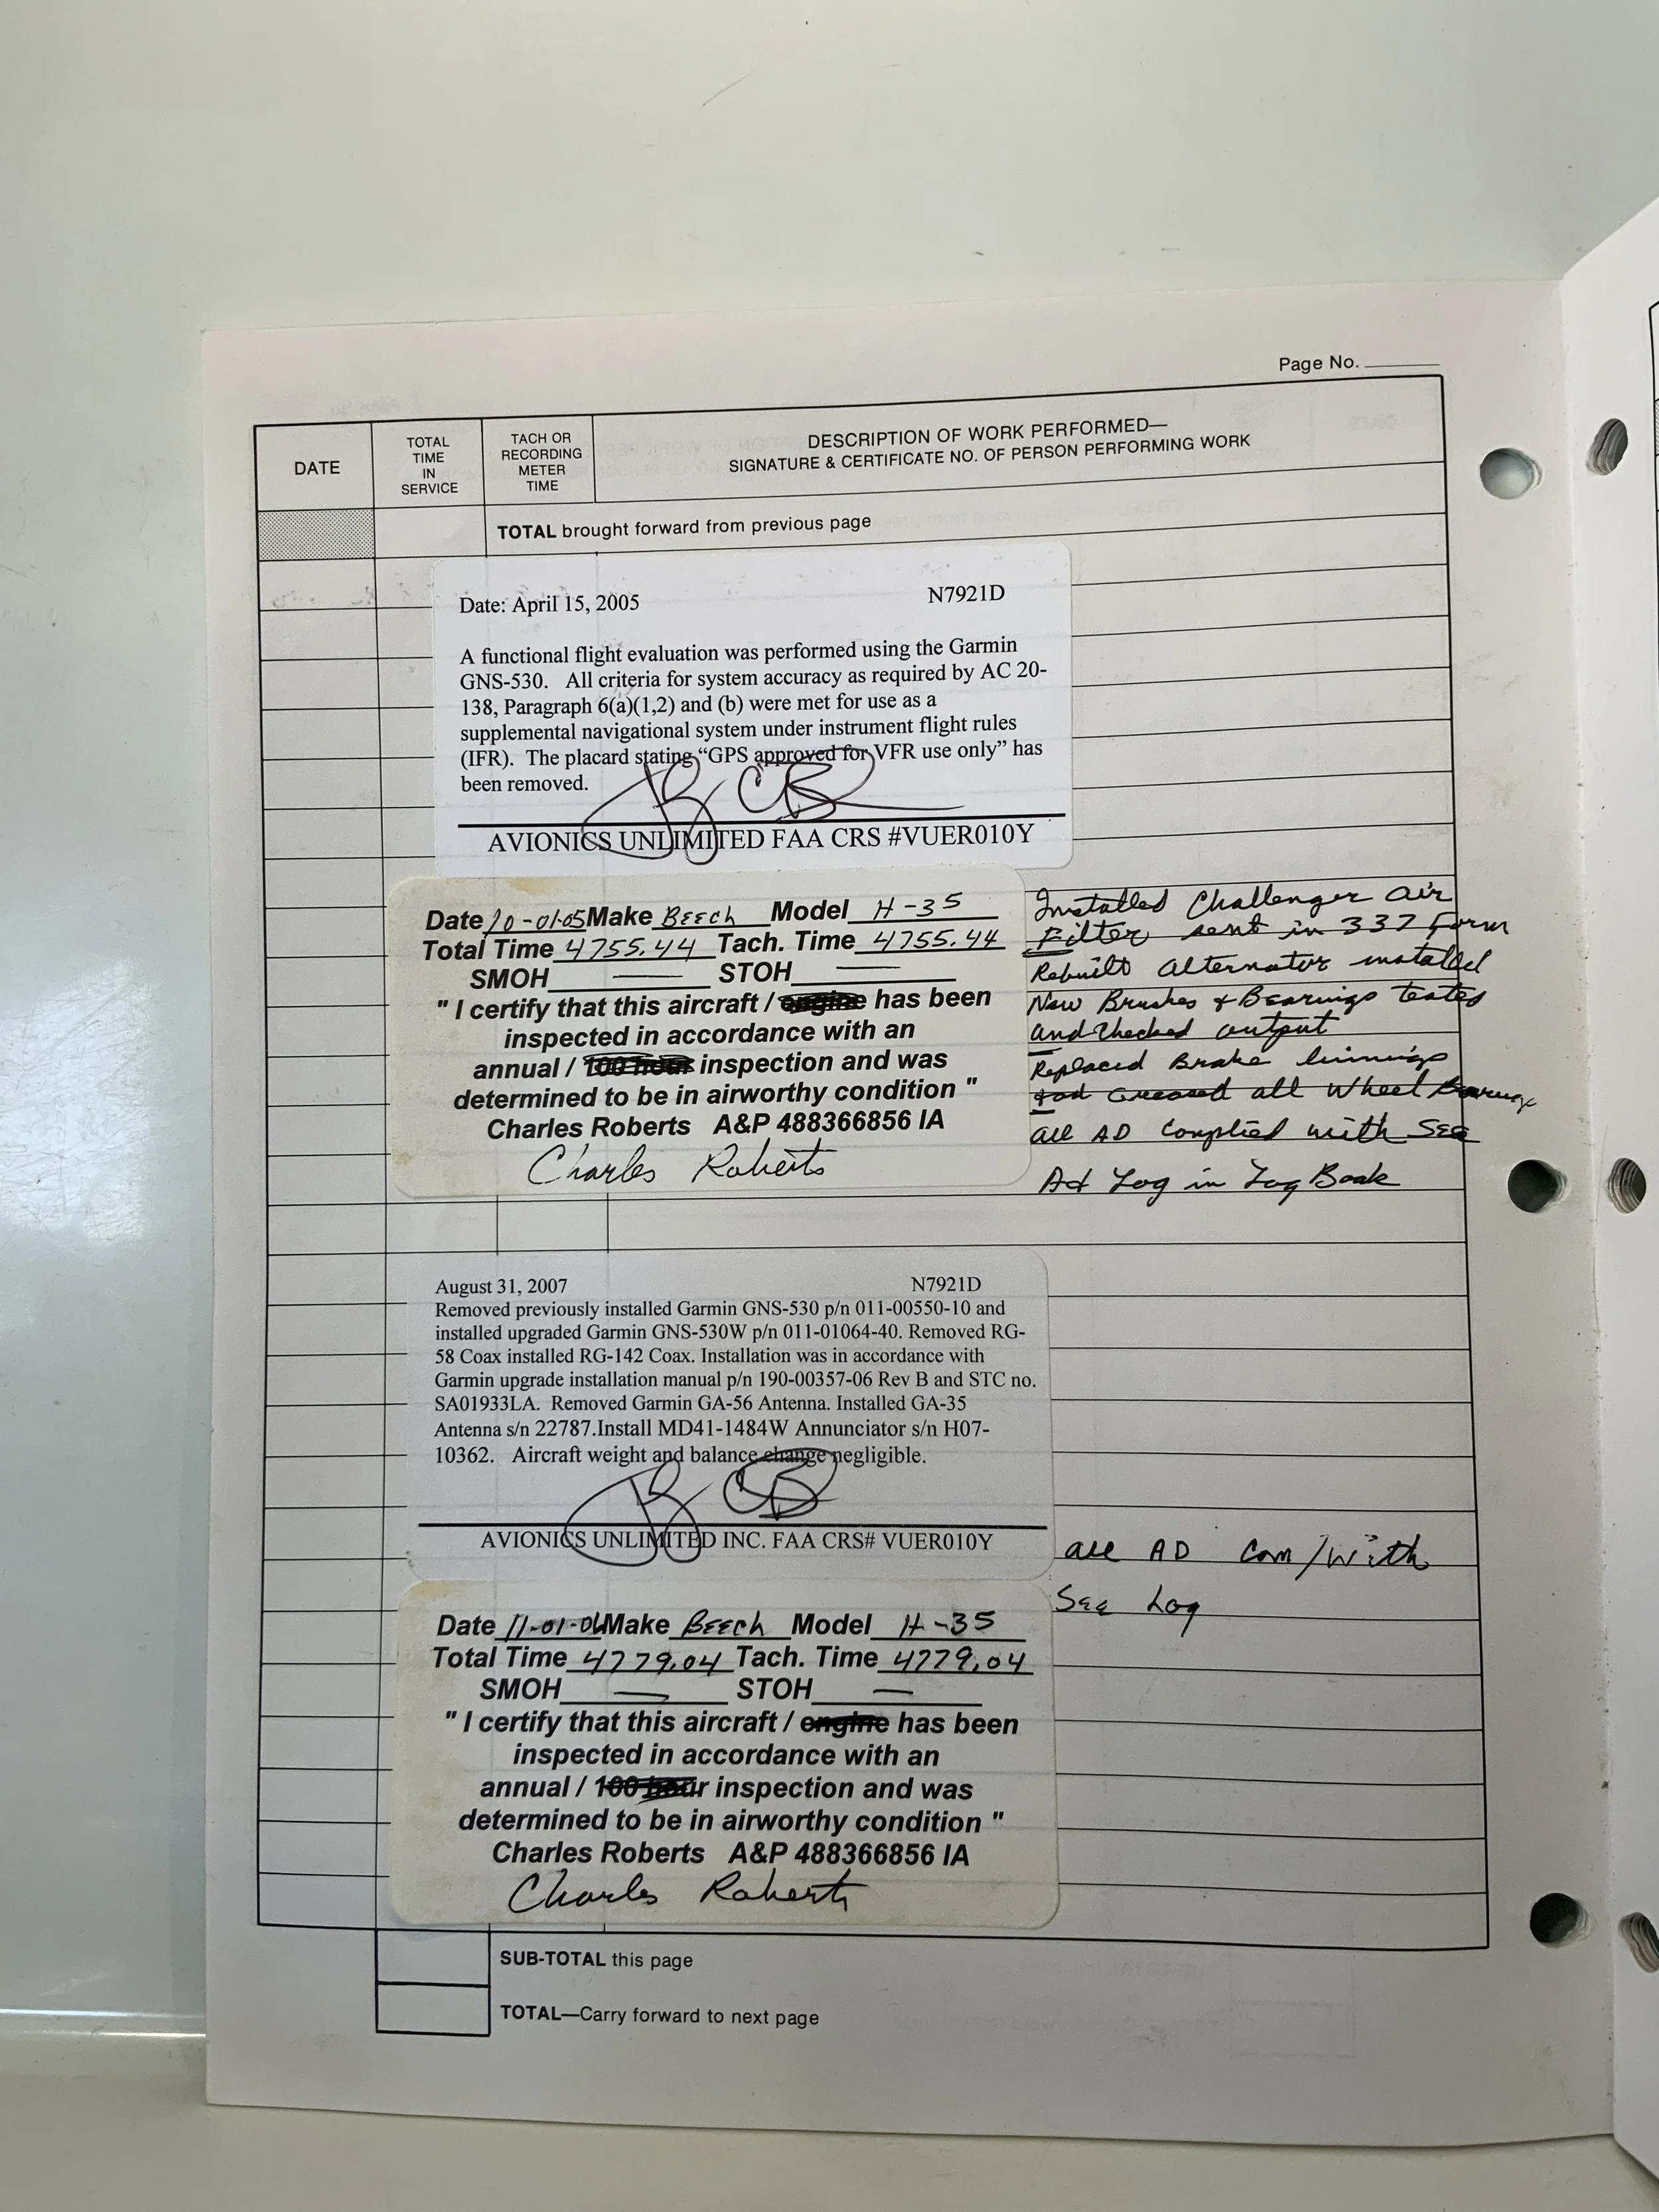 Page No.
DATE
TOTAL
TIME
IN
SERVICE
TACH OR
RECORDING
METER
TIME
DESCRIPTION OF WORK PERFORMED—
SIGNATURE & CERTIFICATE NO. OF PERSON PERFORMING WORK
TOTAL brought forward from previous page
Date: April 15, 2005 N7921D
A functional flight evaluation was performed using the Garmin
GNS-530. All criteria for system accuracy as required by AC 20-
138, Paragraph 6(a)(1,2) and (b) were met for use as a
supplemental navigational system under instrument flight rules
(IFR). The placard stating “GPS approved for VFR use only” has
been removed.
AVIONICS UNLIMITED FAA CRS #VUER010Y
Date 10-01-05 Make BEECH Model H-35
Total Time 4755.44 Tach. Time 4755.44
SMOH — STOH —
" I certify that this aircraft / engine has been
inspected in accordance with an
annual / 100 hour inspection and was
determined to be in airworthy condition "
Charles Roberts A&P 488366856 IA
Charles Roberts
Installed Challenger Air
Filter sent in 337 Form
Rebuilt Alternator installed
New Brushes & Bearings tested
and checked output
Replaced Brake linnings
and Greased all Wheel Bearings
all AD complied with SEE
Ad Log in Log Book
August 31, 2007 N7921D
Removed previously installed Garmin GNS-530 p/n 011-00550-10 and
installed upgraded Garmin GNS-530W p/n 011-01064-40. Removed RG-
58 Coax installed RG-142 Coax. Installation was in accordance with
Garmin upgrade installation manual p/n 190-00357-06 Rev B and STC no.
SA01933LA. Removed Garmin GA-56 Antenna. Installed GA-35
Antenna s/n 22787.Install MD41-1484W Annunciator s/n H07-
10362. Aircraft weight and balance change negligible.
AVIONICS UNLIMITED INC. FAA CRS# VUER010Y
all AD Com/With
See Log
Date 11-01-06 Make BEECH Model H-35
Total Time 4779.04 Tach. Time 4779.04
SMOH — STOH —
" I certify that this aircraft / engine has been
inspected in accordance with an
annual / 100 hour inspection and was
determined to be in airworthy condition "
Charles Roberts A&P 488366856 IA
Charles Roberts
SUB-TOTAL this page
TOTAL—Carry forward to next page